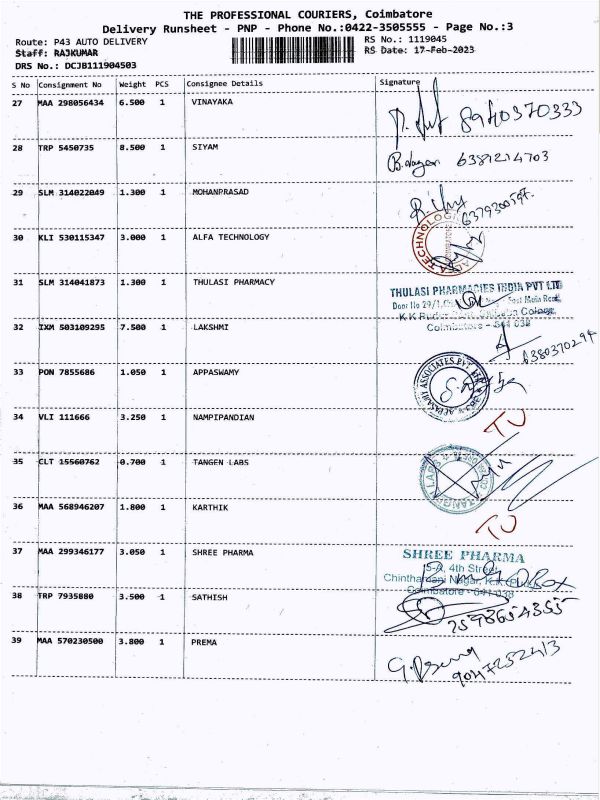 THE PROFESSIONAL COURIERS, Coimbatore
Delivery Runsheet - PNP - Phone No.:0422-3505555 - Page No.:3
Route: P43 AUTO DELIVERY RS No.: 1119045
Staff: RAJKUMAR RS Date: 17-Feb-2023
DRS No.: DCJB111904503
S No Consignment No Weight PCS Consignee Details Signature
27 MAA 298056434 6.500 1 VINAYAKA 8940370333
28 TRP 5450735 8.500 1 SIYAM 6381214703
29 SLM 314022049 1.300 1 MOHANPRASAD
30 KLI 530115347 3.000 1 ALFA TECHNOLOGY
31 SLM 314041873 1.300 1 THULASI PHARMACY
THULASI PHARMACIES INDIA PVT LTD
Coimbatore - 641 038
32 IXM 503109295 7.500 1 LAKSHMI
33 PON 7855686 1.050 1 APPASWAMY
34 VLI 111666 3.250 1 NAMPIPANDIAN
35 CLT 15560762 0.700 1 TANGEN LABS
36 MAA 568946207 1.800 1 KARTHIK
37 MAA 299346177 3.050 1 SHREE PHARMA
SHREE PHARMA
5-A, 4th Street
Coimbatore - 641 038
38 TRP 7935880 3.500 1 SATHISH
39 MAA 570230500 3.800 1 PREMA